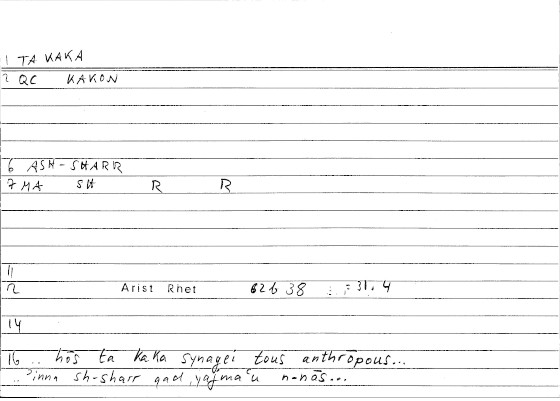 1 TA KAKA
2 QC KAKON
6 ASH-SHARR
7 MA SH R R
11
2 Arist Rhet 62b38 = 31.4
14
16 .. hōs ta kaka synagei tous anthrōpous...
.. ʾinna sh-sharr qad yajmaʿu n-nās...